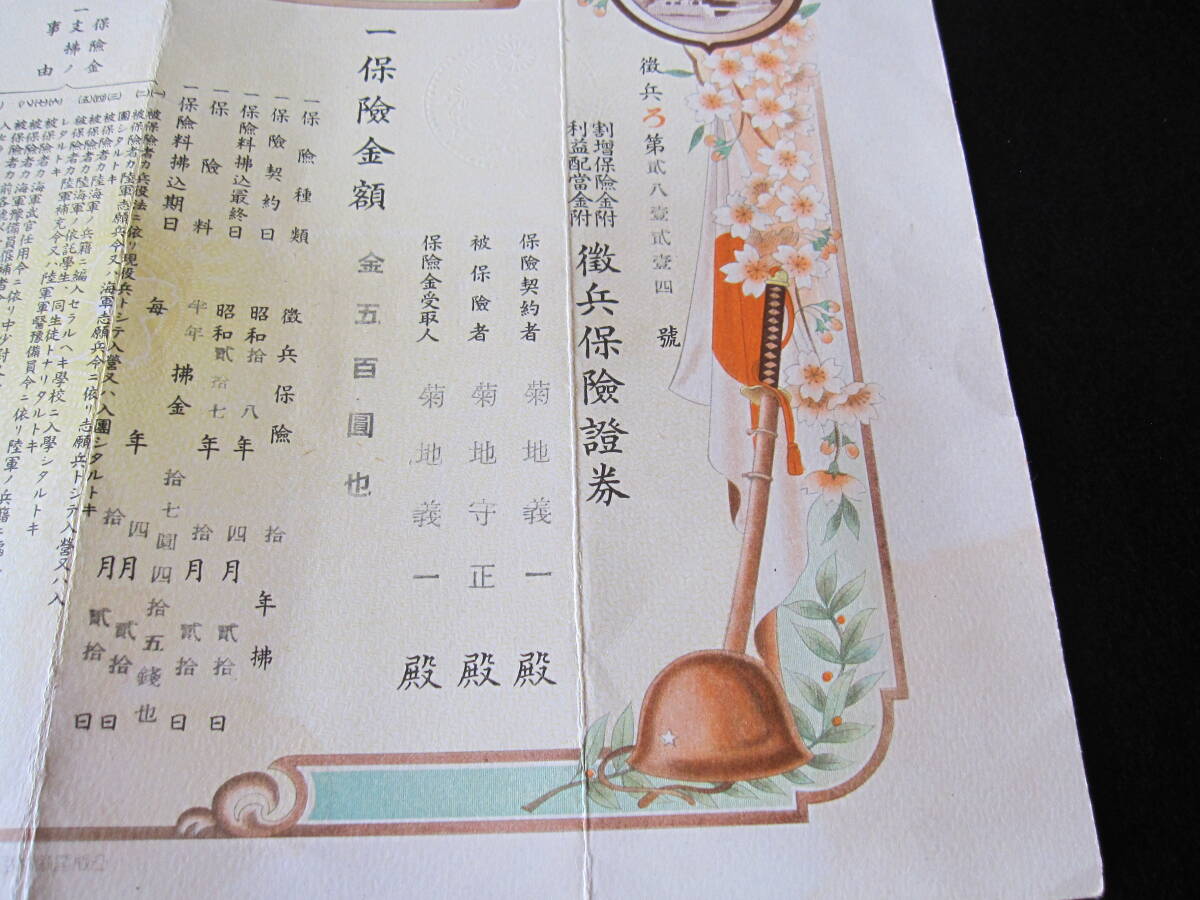 徴兵ろ第貳八壹貳壹四號
割增保險金附
利益配當金附
徴兵保險證券
保險契約者 菊地義一殿
被保險者 菊地守正殿
保險金受取人 菊地義一殿
一保險金額 金五百圓也
一保險種類 徴兵保險 拾年拂
一保險契約日 昭和拾八年四月貳拾日
一保險料拂込最終日 昭和貳拾七年拾月貳拾日
一保險料 半年拂金拾七圓四拾五錢也
一保險料拂込期日 每年四月貳拾日
拾月貳拾日
一保險金支拂ノ事由
(一)被保險者カ兵役法ニ依リ現役兵トシテ入營又ハ入團シタルトキ
(二)被保險者カ陸軍志願兵令又ハ海軍志願兵令ニ依リ志願兵トシテ入營又ハ入
團シタルトキ
(三)被保險者カ陸海軍ノ兵籍ニ編入セラルヘキ學校ニ入學シタルトキ
(四)被保險者カ陸海軍ノ依託學生、同生徒トナリタルトキ
(五)被保險者カ陸軍補充令又ハ陸軍軍醫豫備員令ニ依リ陸軍ノ兵籍ニ編入
レタルトキ
(六)被保險者カ海軍武官任用令ニ依リ
(七)被保險者カ海軍豫備員